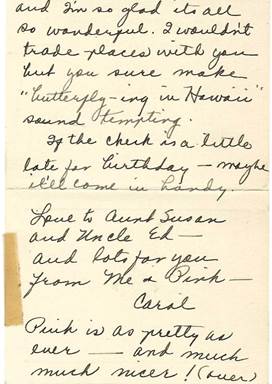 and I'm so glad its all
so wonderful. I wouldn't
trade places with you
but you sure make
"butterfly-ing in Hawaii"
sound tempting.
If the check is a little
late for birthday — maybe
it'll come in handy.
Love to Aunt Susan
and Uncle Ed —
and lots for you
From Me & Pink —
Carol
Pink is as pretty as
ever — and much
much nicer! (over)